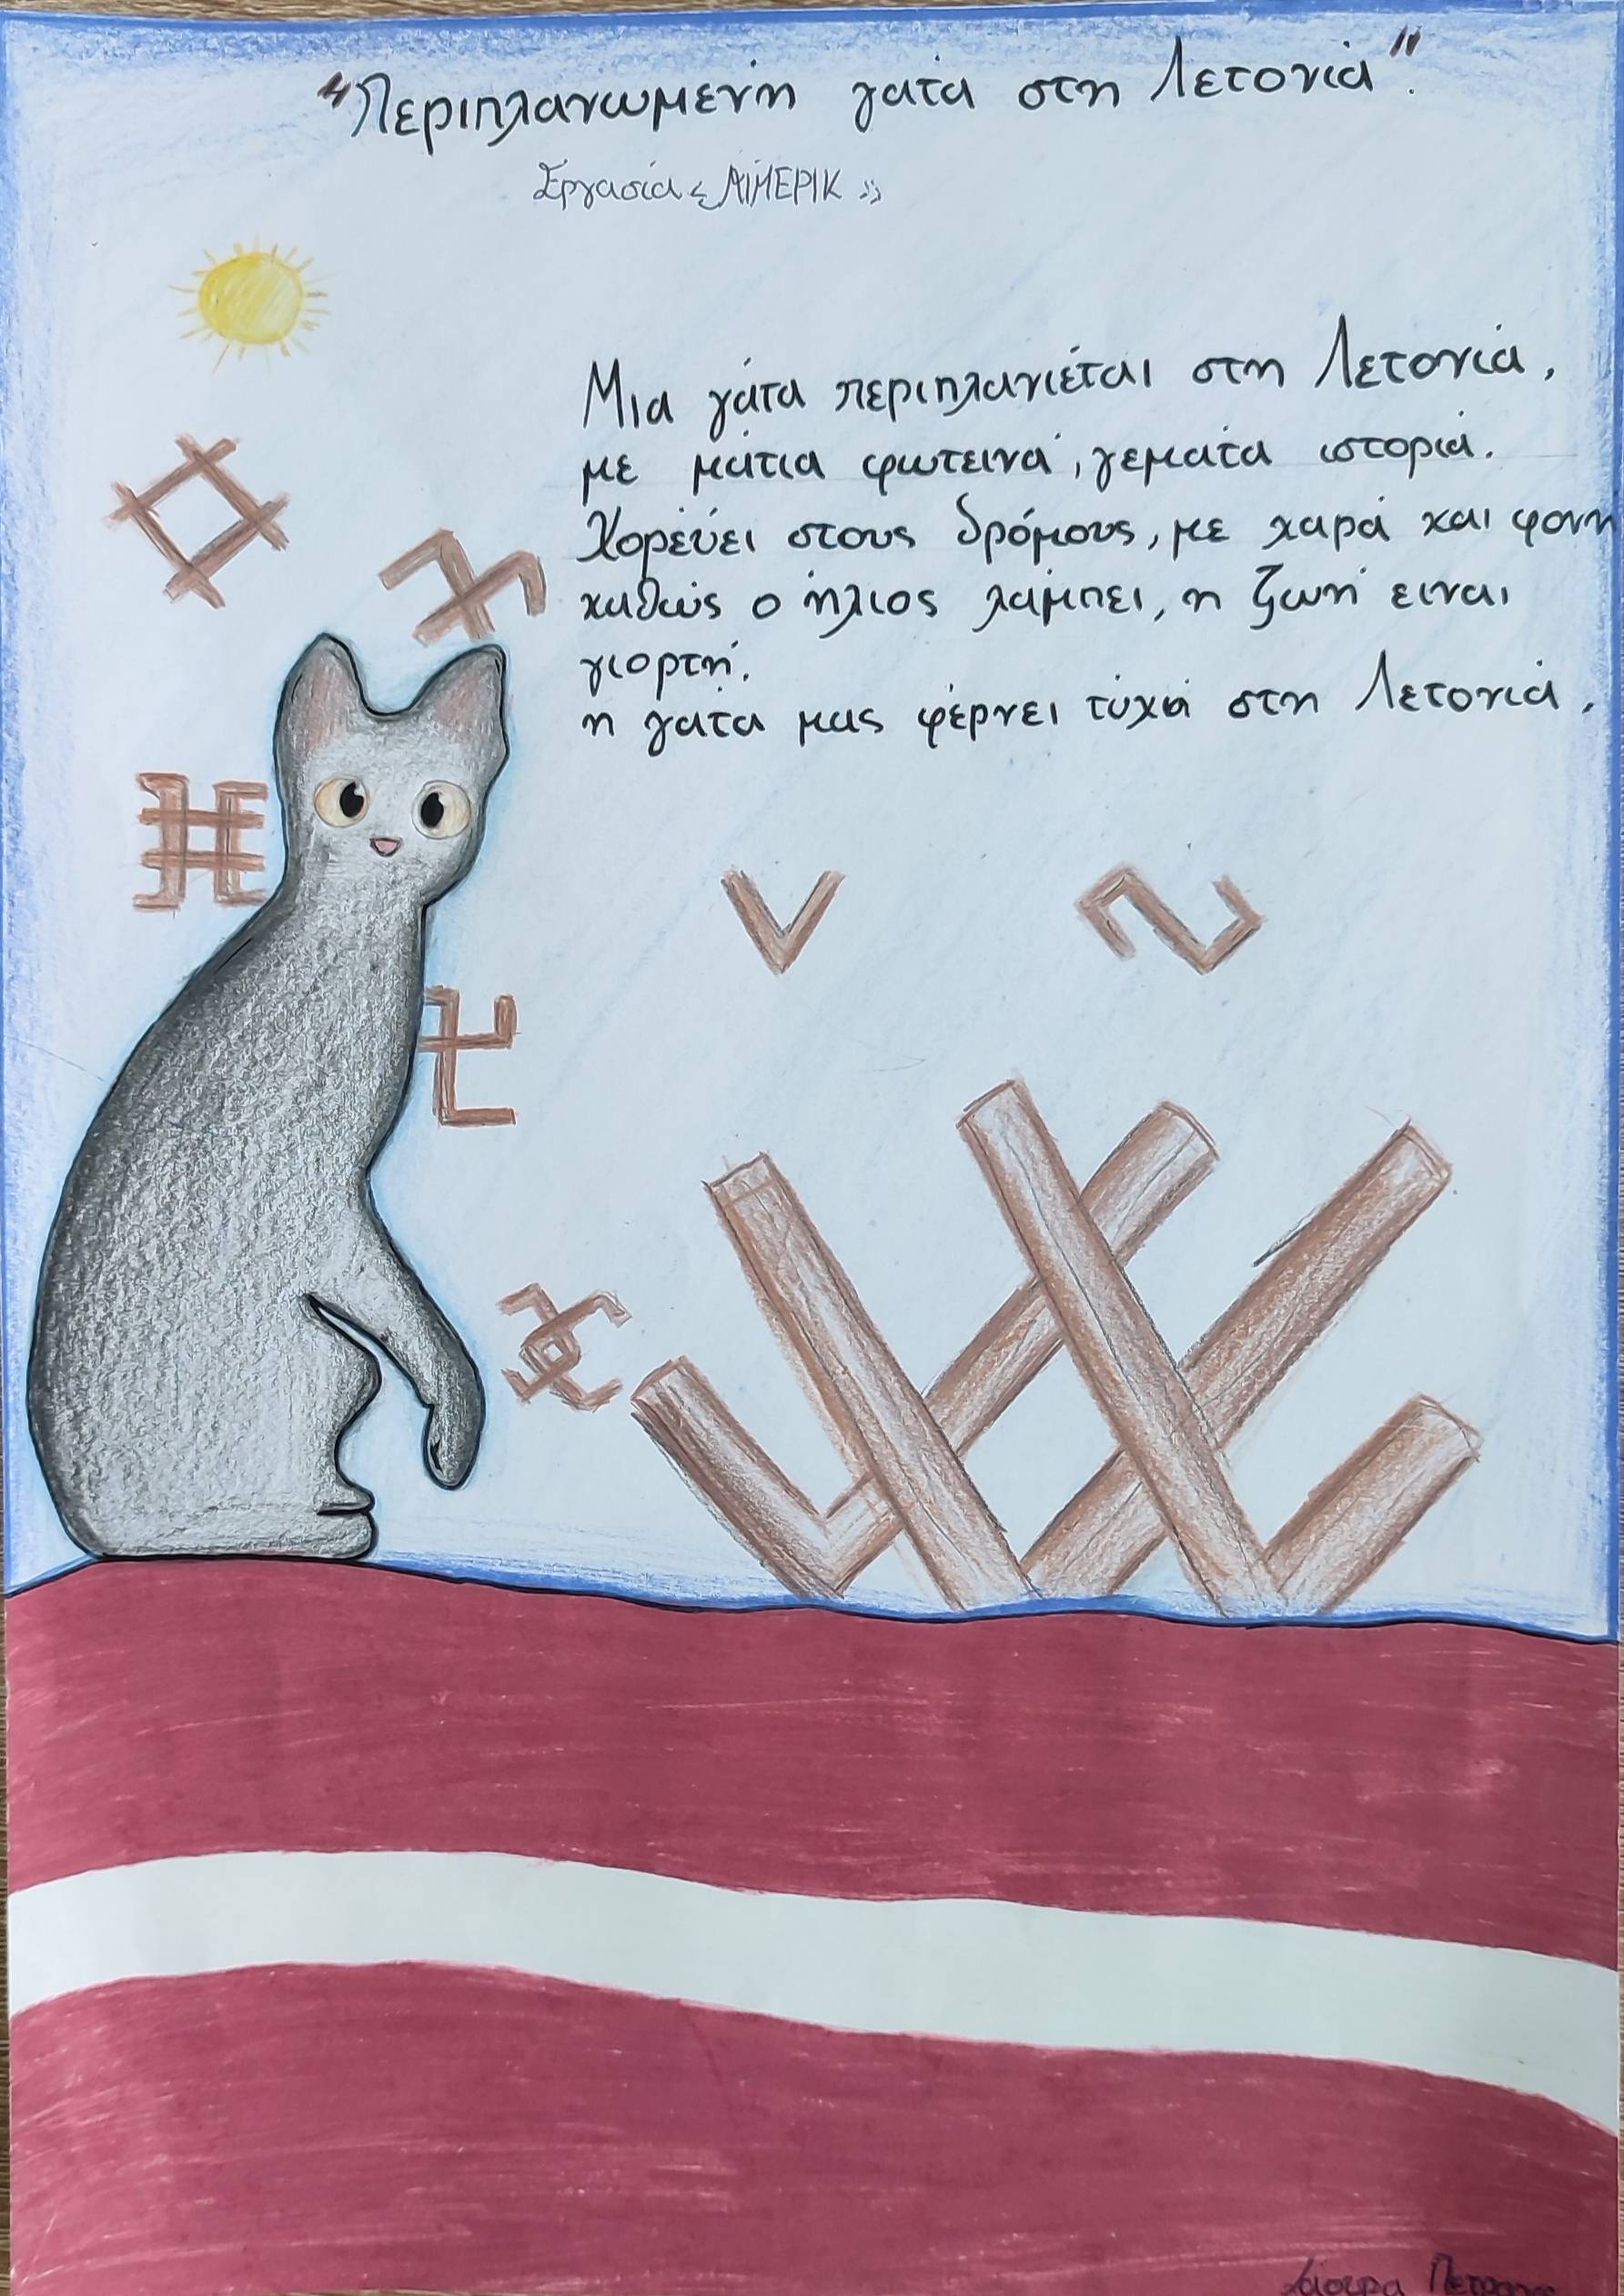 "Περιπλανωμενη γατα στη Λετονια".
Εργασία «ΛΙΜΕΡΙΚ»
Μια γάτα περιπλανιέται στη Λετονιά,
με μάτια φωτεινά, γεμάτα ιστορία.
Χορεύει στους δρόμους, με χαρά και φονη
καθώς ο ήλιος λάμπει, η ζωή ειναι
γιορτή.
η γάτα μας φέρνει τύχη στη Λετονιά.